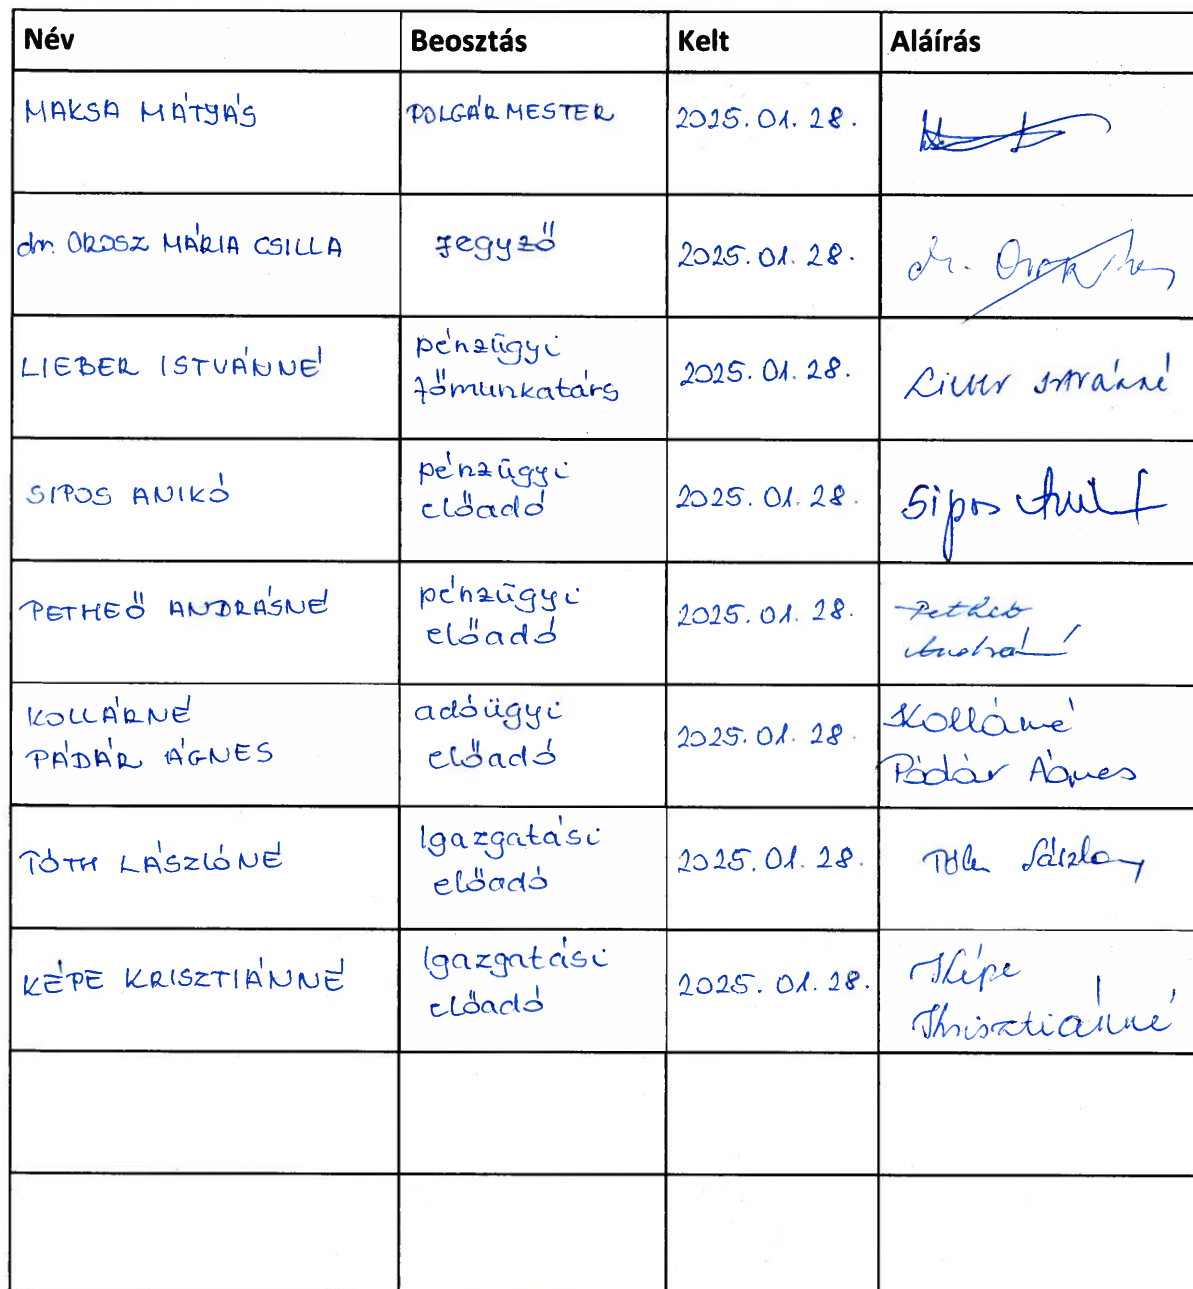 Név Beosztás Kelt Aláírás
MAKSA MÁTYÁS POLGÁRMESTER 2025.01.28.
dr. OROSZ MÁRIA CSILLA jegyző 2025.01.28. dr. Orosz
LIEBER ISTVÁNNÉ pénzügyi főmunkatárs 2025.01.28. Lieber Istvánné
SIPOS ANIKÓ pénzügyi előadó 2025.01.28. Sipos Anikó
PETHEŐ ANDRÁSNÉ pénzügyi előadó 2025.01.28. Petheő
KOLLÁRNÉ PÁDÁR ÁGNES adóügyi előadó 2025.01.28. Kollárné Pádár Ágnes
TÓTH LÁSZLÓNÉ Igazgatási előadó 2025.01.28. Tóth Lászlóné
KÉPE KRISZTIÁNNÉ Igazgatási előadó 2025.01.28. Képe Krisztiánné